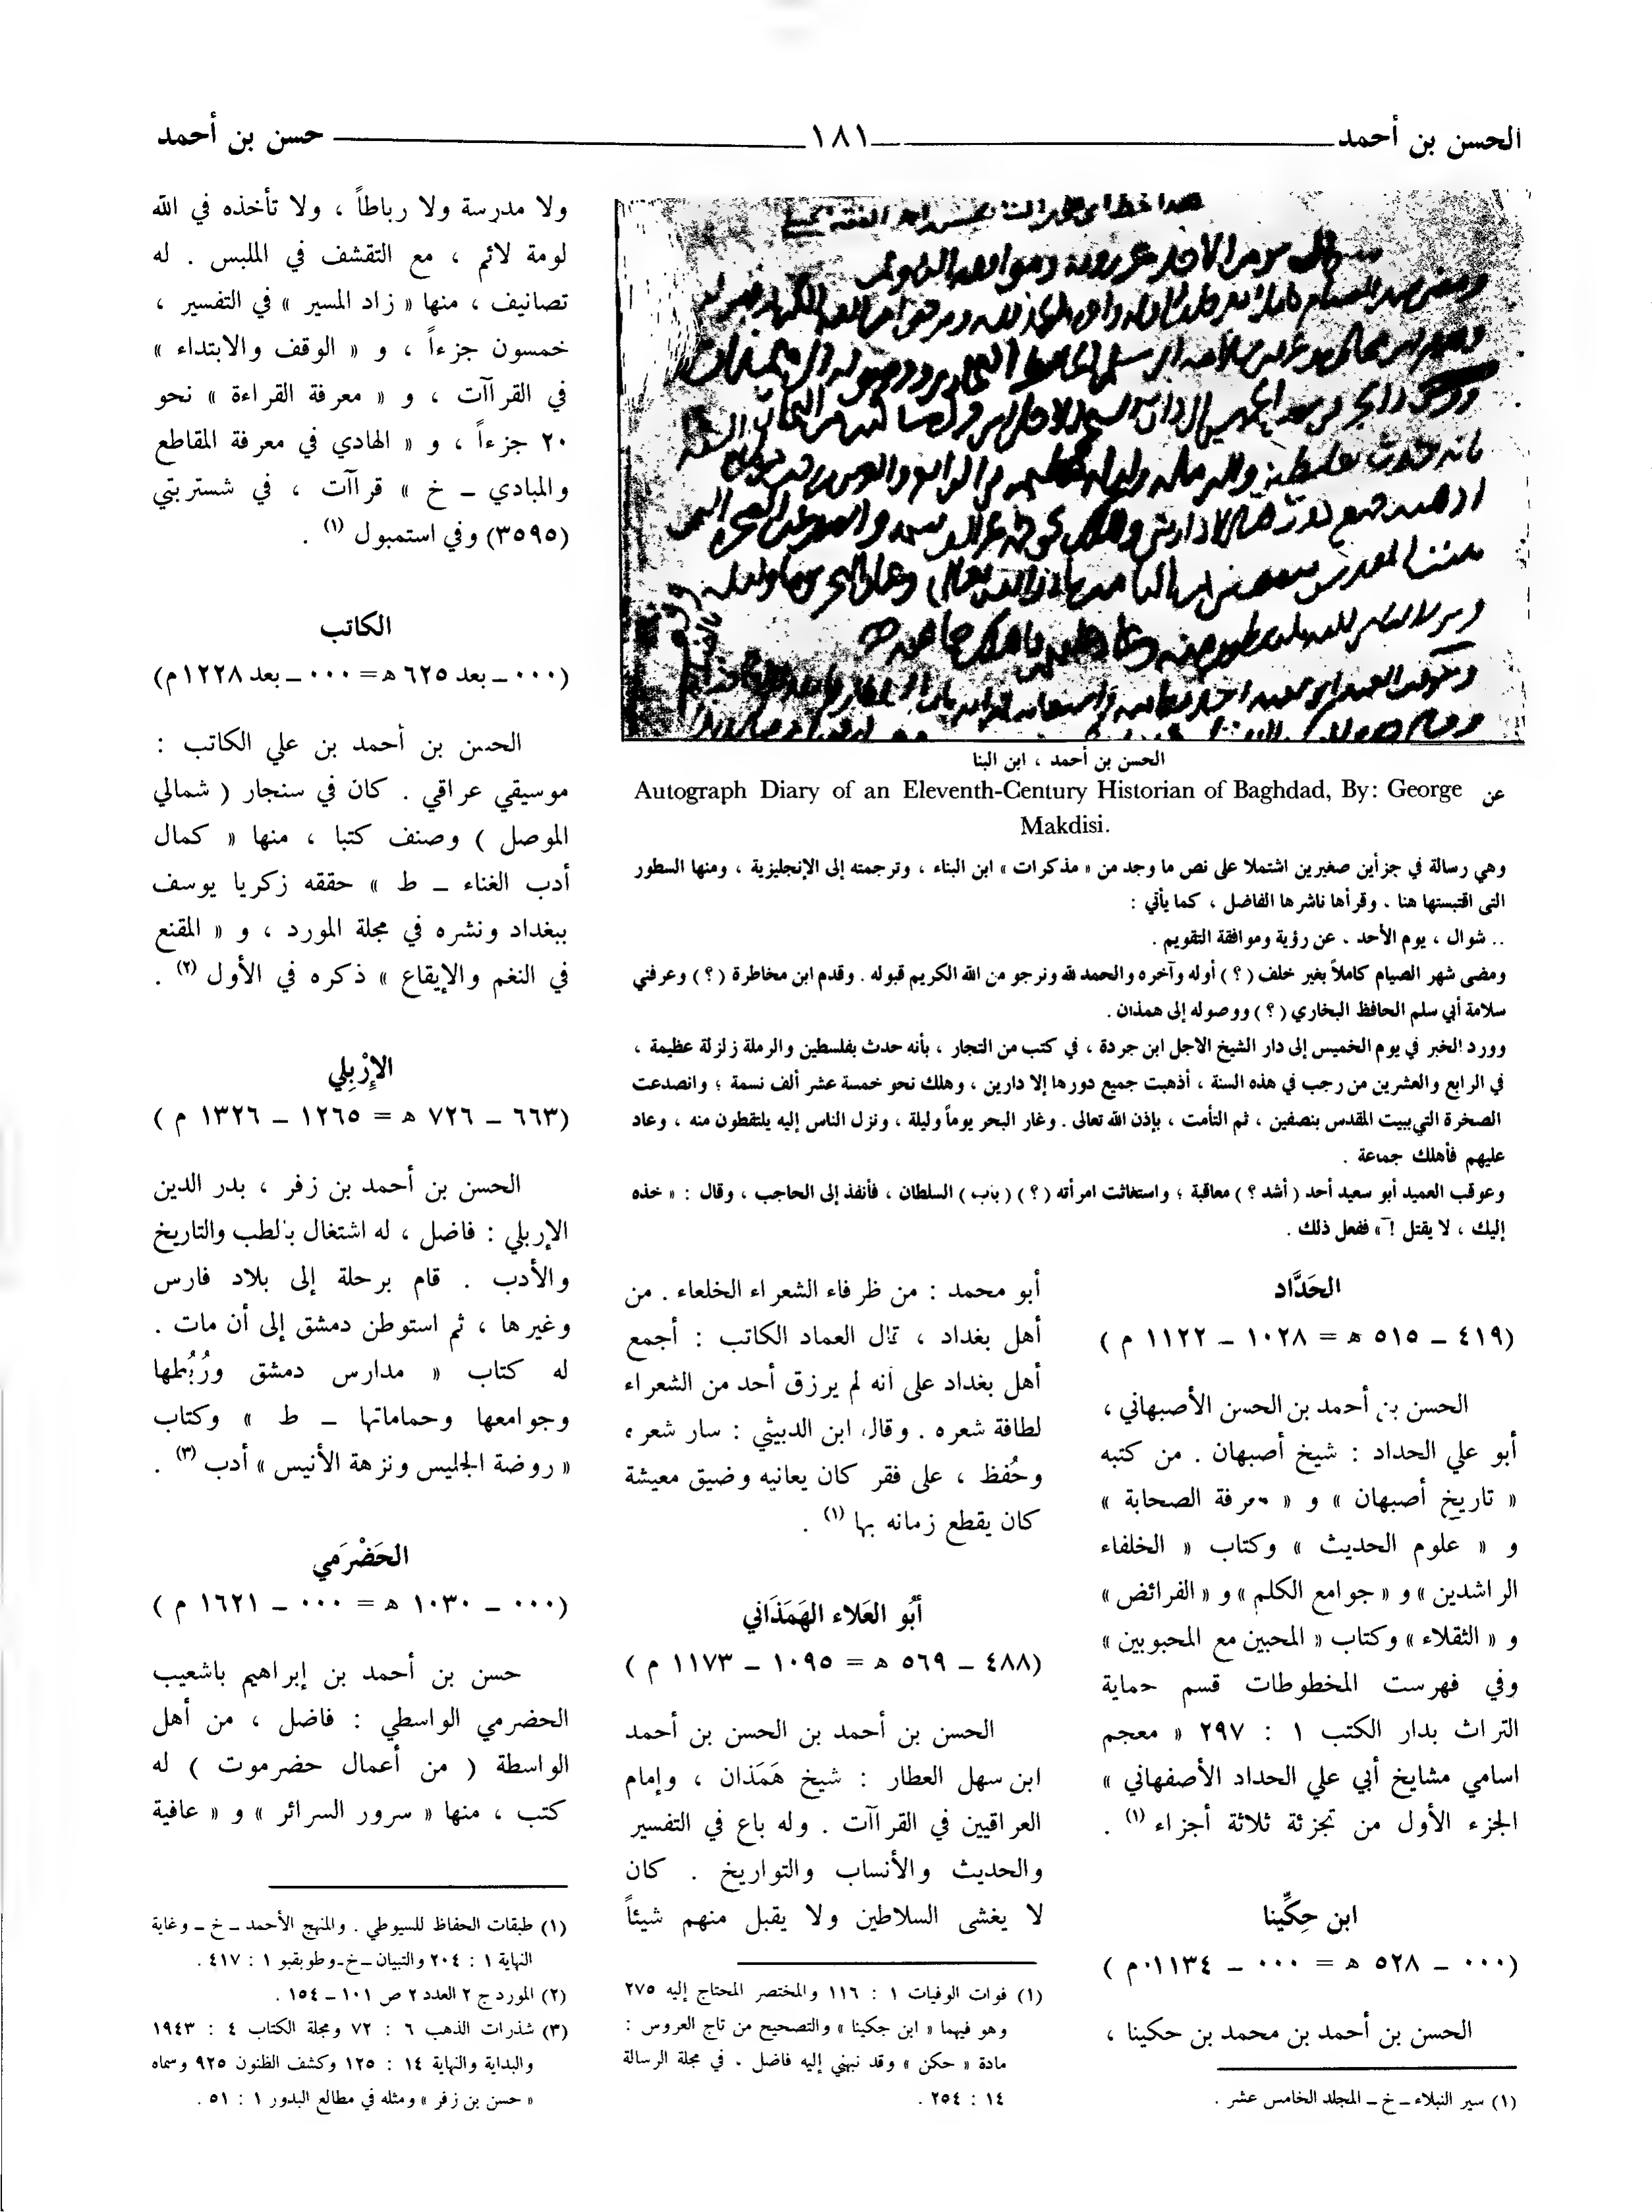 الحسن بن أحمد
١٨١
حسن بن أحمد
الحسن بن أحمد ، ابن البنا
عن Autograph Diary of an Eleventh-Century Historian of Baghdad, By: George
Makdisi.
وهي رسالة في جزأين صغيرين اشتملا على نص ما وجد من « مذكرات » ابن البناء ، وترجمته إلى الإنجليزية ، ومنها السطور
التي اقتبستها هنا . وقرأها ناشرها الفاضل ، كما يأتي :
.. شوال ، يوم الأحد . عن رؤية وموافقة التقويم .
ومضى شهر الصيام كاملاً بغير خلف ( ؟ ) أوله وآخره والحمد لله ونرجو من الله الكريم قبوله . وقدم ابن مخاطرة ( ؟ ) وعرفني
سلامة أبي سلم الحافظ البخاري ( ؟ ) ووصوله إلى همذان .
وورد الخبر في يوم الخميس إلى دار الشيخ الاجل ابن جردة ، في كتب من التجار ، بأنه حدث بفلسطين والرملة زلزلة عظيمة ،
في الرابع والعشرين من رجب في هذه السنة ، أذهبت جميع دورها إلا دارين ، وهلك نحو خمسة عشر ألف نسمة ؛ وانصدعت
الصخرة التي ببيت المقدس بنصفين ، ثم التأمت ، بإذن الله تعالى . وغار البحر يوماً وليلة ، ونزل الناس إليه يلتقطون منه ، وعاد
عليهم فأهلك جماعة .
وعوقب العميد أبو سعيد أحد ( أشد ؟ ) معاقبة ؛ واستغاثت امرأته ( ؟ ) ( باب ) السلطان ، فأنفذ إلى الحاجب ، وقال : « خذه
إليك ، لا يقتل ! » ففعل ذلك .
الحَدَّاد
(٤١٩ – ٥١٥ ه = ١٠٢٨ – ١١٢٢ م )
الحسن بن أحمد بن الحسن الأصبهاني ،
أبو علي الحداد : شيخ أصبهان . من كتبه
« تاريخ أصبهان » و « معرفة الصحابة »
و « علوم الحديث » وكتاب « الخلفاء
الراشدين » و « جوامع الكلم » و « الفرائض »
و « الثقلاء » وكتاب « المحبين مع المحبوبين »
وفي فهرست المخطوطات قسم حماية
التراث بدار الكتب ١ : ٢٩٧ « معجم
اسامي مشايخ أبي علي الحداد الأصفهاني »
الجزء الأول من تجزئة ثلاثة أجزاء (١) .
ابن حِكِّينا
(٠٠٠ – ٥٢٨ ه = ٠٠٠ – ١١٣٤م )
الحسن بن أحمد بن محمد بن حكينا ،
(١) سير النبلاء – خ – المجلد الخامس عشر .
أبو محمد : من ظرفاء الشعراء الخلعاء . من
أهل بغداد ، قال العماد الكاتب : أجمع
أهل بغداد على أنه لم يرزق أحد من الشعراء
لطافة شعره . وقال ابن الدبيثي : سار شعره
وحُفظ ، على فقر كان يعانيه وضيق معيشة
كان يقطع زمانه بها (١) .
أبُو العَلاء الهَمَذَاني
(٤٨٨ – ٥٦٩ ه = ١٠٩٥ – ١١٧٣ م )
الحسن بن أحمد بن الحسن بن أحمد
ابن سهل العطار : شيخ هَمَذان ، وإمام
العراقيين في القراآت . وله باع في التفسير
والحديث والأنساب والتواريخ . كان
لا يغشى السلاطين ولا يقبل منهم شيئاً
(١) فوات الوفيات ١ : ١١٦ والمختصر المحتاج إليه ٢٧٥
وهو فيهما « ابن جكينا » والتصحيح من تاج العروس :
مادة « حكن » وقد نبهني إليه فاضل ، في مجلة الرسالة
١٤ : ٢٥٤ .
ولا مدرسة ولا رباطاً ، ولا تأخذه في الله
لومة لائم ، مع التقشف في الملبس . له
تصانيف ، منها « زاد المسير » في التفسير ،
خمسون جزءاً ، و « الوقف والابتداء »
في القراآت ، و « معرفة القراءة » نحو
٢٠ جزءاً ، و « الهادي في معرفة المقاطع
والمبادي – خ » قراآت ، في شستربتي
(٣٥٩٥) وفي استمبول (١) .
الكاتب
(٠٠٠ – بعد ٦٢٥ ه = ٠٠٠ – بعد ١٢٢٨م)
الحسن بن أحمد بن علي الكاتب :
موسيقي عراقي . كان في سنجار ( شمالي
الموصل ) وصنف كتبا ، منها « كمال
أدب الغناء – ط » حققه زكريا يوسف
ببغداد ونشره في مجلة المورد ، و « المقنع
في النغم والإيقاع » ذكره في الأول (٢) .
الإِرْبِلِي
(٦٦٣ – ٧٢٦ ه = ١٢٦٥ – ١٣٢٦ م )
الحسن بن أحمد بن زفر ، بدر الدين
الإربلي : فاضل ، له اشتغال بالطب والتاريخ
والأدب . قام برحلة إلى بلاد فارس
وغيرها ، ثم استوطن دمشق إلى أن مات .
له كتاب « مدارس دمشق ورُبُطها
وجوامعها وحماماتها – ط » وكتاب
« روضة الجليس ونزهة الأنيس » أدب (٣) .
الحَضْرَمي
(٠٠٠ – ١٠٣٠ ه = ٠٠٠ – ١٦٢١ م )
حسن بن أحمد بن إبراهيم باشعيب
الحضرمي الواسطي : فاضل ، من أهل
الواسطة ( من أعمال حضرموت ) له
كتب ، منها « سرور السرائر » و « عافية
(١) طبقات الحفاظ للسيوطي . والمنهج الأحمد – خ – وغاية
النهاية ١ : ٢٠٤ والتبيان – خ – وطوبقبو ١ : ٤١٧ .
(٢) المورد ج ٢ العدد ٢ ص ١٠١ – ١٥٤ .
(٣) شذرات الذهب ٦ : ٧٢ ومجلة الكتاب ٤ : ١٩٤٣
والبداية والنهاية ١٤ : ١٢٥ وكشف الظنون ٩٢٥ وسماه
« حسن بن زفر » ومثله في مطالع البدور ١ : ٥١ .